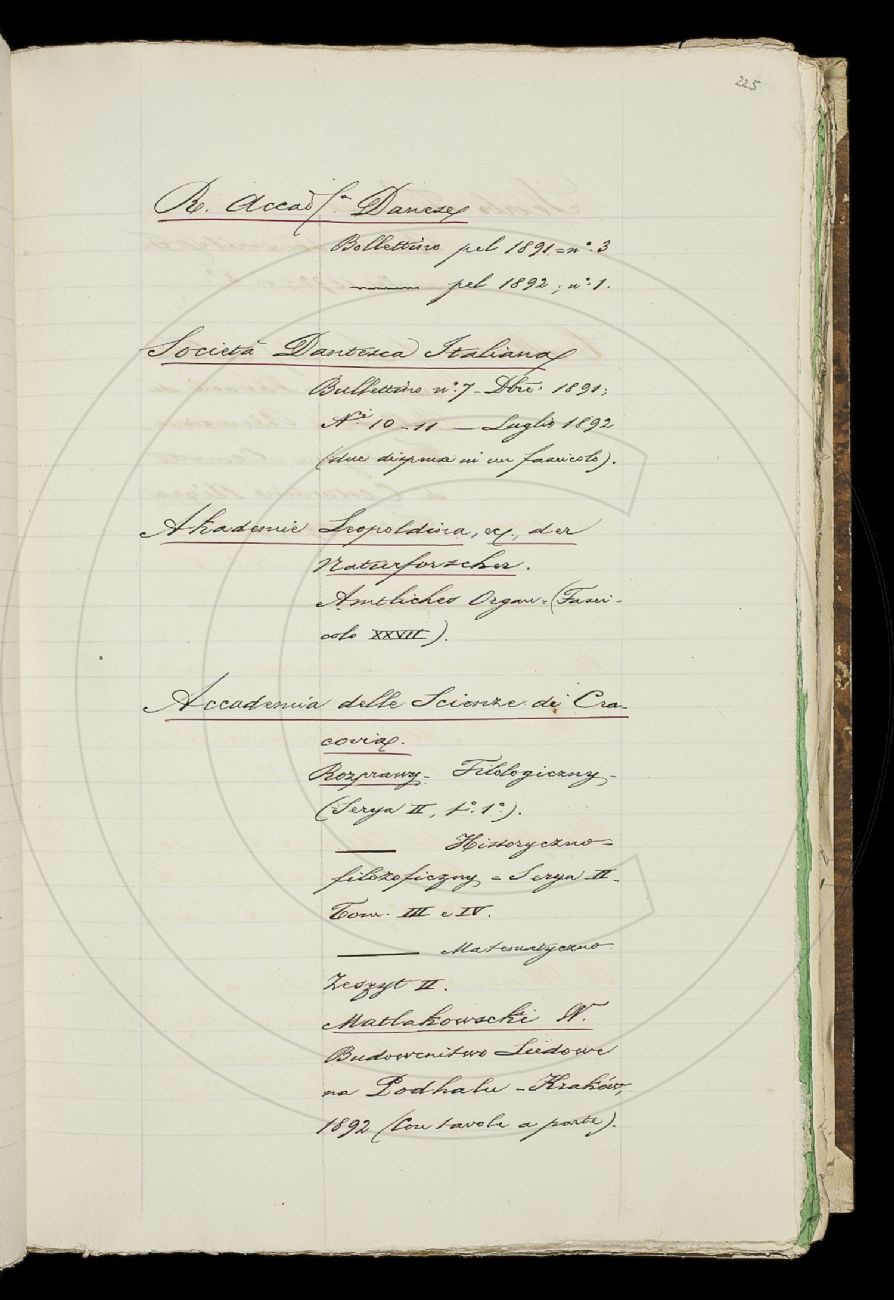 225
R. Accad.ª Danese
Bollettino pel 1891 = nº. 3
—— pel 1892; nº. 1.
Società Dantesca Italiana
Bullettino nº. 7 - Dbre. 1891;
Nⁱ 10-11 — Luglio 1892
(due dispense in un fascicolo).
Akademie Leopoldina, der
Naturforscher.
Amtliches Organ = (Fasci-
colo XXVII).
Accademia delle Scienze di Cra-
covia.
Rozprawy - Filologiczny -
(Serya II, tº. 1º).
—— Historyczno =
filozoficzny = Serya II -
Tom. III e IV.
—— Matematyczno
Zeszyt II.
Matlakowscki W.
Budownitwo Ludowe
na Podhalu - Kraków,
1892 (Con tavole a parte).